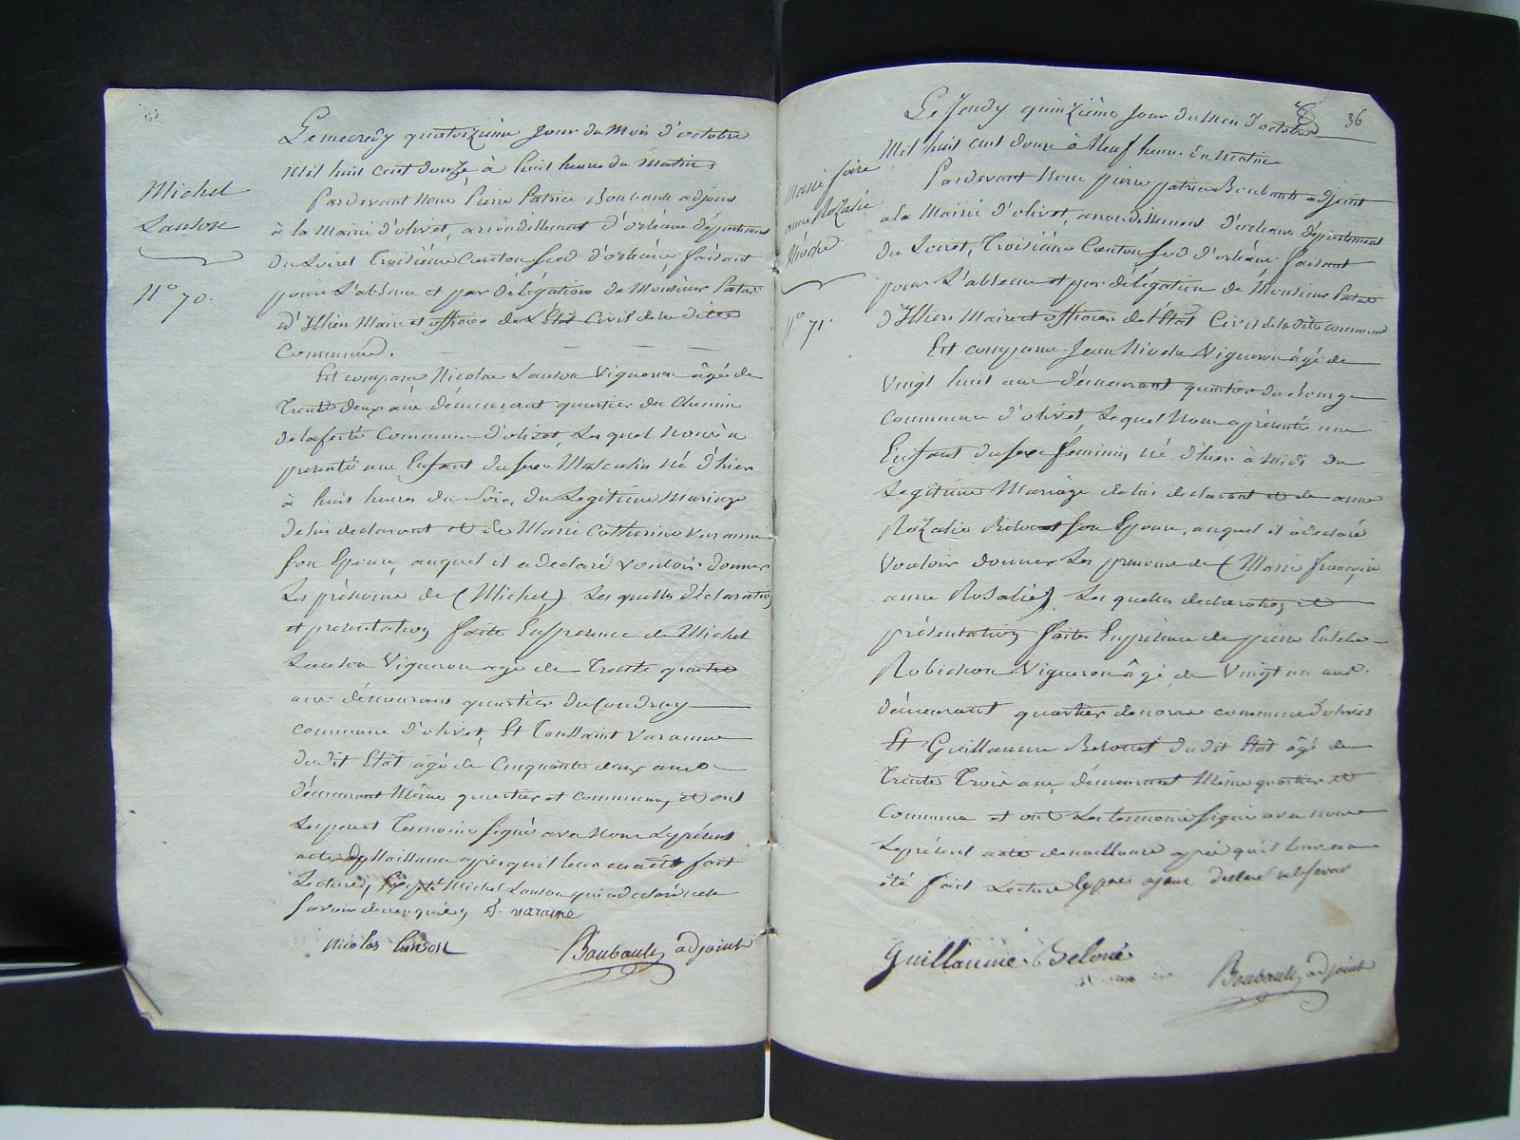 Le mecredy quatorzieme Jour du Mois d'octobre
mil huit cent douze à huit heures du matin
Michel
Lanson
N° 70.
Pardevant Nous Pierre Patrice Boubault adjoint
à la Mairie d'olivet, arrondissement d'orléans département
du Loiret Troisième Canton sud d'orléans, faisant
pour L'absence et par délégation de Monsieur Patas
d'Illiers Maire et officier de L'État Civil de la ditte
Commune.
Est comparu Nicolas Lanson Vigneron âgé de
Trente deux ans demeurant quartier du Chemin
de la ferté Commune d'olivet, Lequel Nous a
presenté un Enfant du sexe Masculin né d'hier
à huit heures du Soir, du Legitime Mariage
de lui declarant et de Marie Catherine Varanne
son Epouse, auquel il a declaré vouloir donner
Les prénoms de (Michel) Les quelles déclaration
et presentation faite En presence de Michel
Lanson Vigneron agé de Trente quatre
ans demeurant quartier du Coudray
commune d'olivet, Et Toussaint Varanne
dudit Etat âgé de Cinquante deux ans
demeurant Même quartier et commune, et ont
Les pere et Temoins signé avec Nous Le présent
acte de Naissance après qu'il leur en a été fait
Lecture, Excepté Michel Lanson qui a declaré ne le
savoir de ce enquis T. varanne
nicolas lanson Boubault, adjoint
36
Le Jeudy quinzième Jour du Mois d'octobre
Mil huit cent douze à Neuf heures du Matin
Marie foise
anne Rozalie
N° 71.
Pardevant Nous pierre patrice Boubault adjoint
à la Mairie d'olivet, arrondissement d'orléans département
du Loiret, Troisième Canton sud d'orléans faisant
pour L'absence et par délégation de Monsieur Patas
d'Illiers Maire et officier de l'État Civil de la ditte commune
Est comparu Jean Nicolas Vigneron âgé de
Vingt huit ans demeurant quartier du
Commune d'olivet, Lequel Nous a présenté un
Enfant du sexe féminin né d'hier à Midi du
Legitime Mariage de lui declarant et de anne
Rozalie son Epouse, auquel il a declaré
Vouloir donner Les prenoms de (Marie françoise
anne Rosalie) Les quelles declaration et
présentation faites En présence de pierre
Robichon Vigneron âgé de Vingt un ans
demeurant quartier commune d'olivet
Et Guillaume dudit Etat âgé de
Trente Trois ans, demeurant Même quartier et
Commune et ont Les temoins signé avec nous
Le présent acte de naissance après qu'il leur en a
été fait Lecture Le père ayant declaré ne le savoir
Guillaume Beloué
Boubault, adjoint